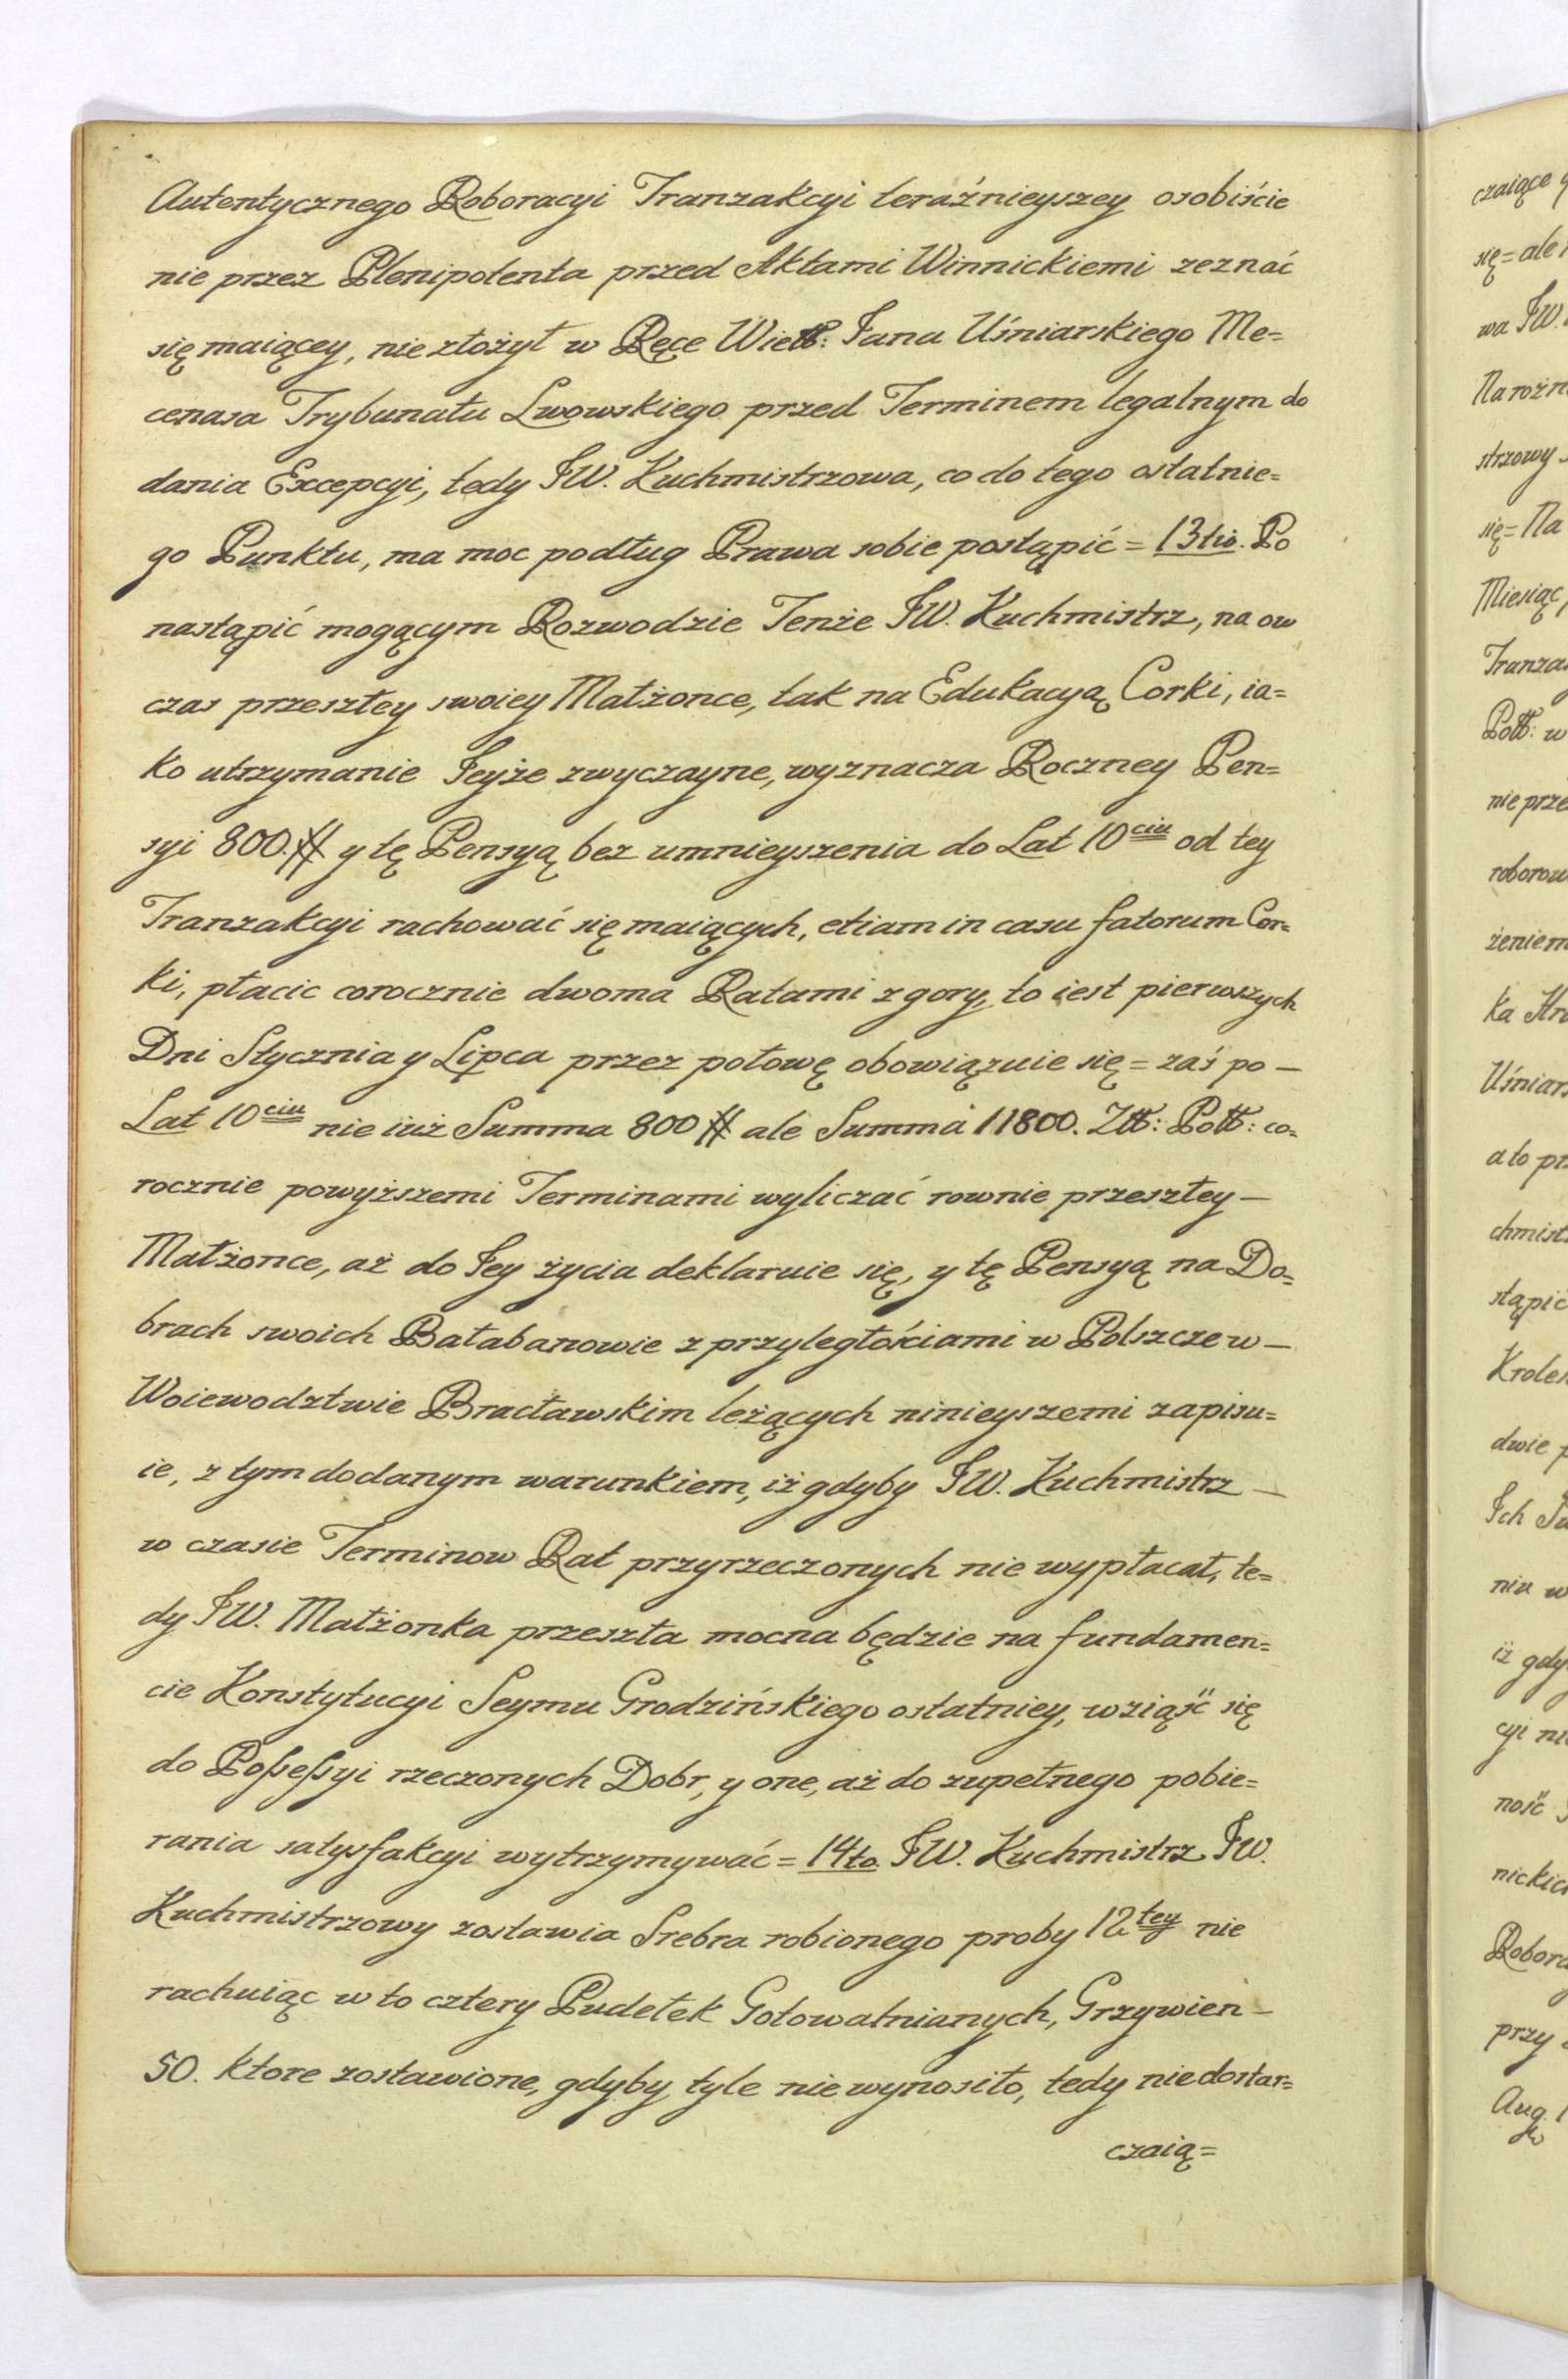 Autentycznego Roboracyi Tranzakcyi teraźnieyszey osobiście
nie przez Plenipotenta przed Aktami Winnickiemi zeznać
się maiącey, nie złożył w Ręce Wielb: Jana Uśniarskiego Me=
cenasa Trybunału Lwowskiego przed Terminem legalnym do
dania Excepcyi, tedy JW. Kuchmistrzowa, co do tego ostatnie=
go Punktu, ma moc podług Prawa sobie postąpić = 13tio. Po
nastąpić mogącym Rozwodzie Tenże JW. Kuchmistrz, na ow
czas przeszłey swoiey Małżonce, tak na Edukacyą Corki, ia=
ko utrzymanie Jeyże zwyczayne, wyznacza Roczney Pen=
syi 800.# y tę Pensyą bez umnieyszenia do Lat 10ciu od tey
Tranzakcyi rachować się maiących, etiam in casu fatorum Cor=
ki, płacic corocznie dwoma Ratami z gory, to iest pierwszych
Dni Stycznia y Lipca przez połowę obowiązuie się = zaś po —
Lat 10ciu nie iuż Summa 800 # ale Summa 11800. Złł: Poll: co=
rocznie powyższemi Terminami wyliczać rownie przeszłey —
Małżonce, aż do Jey życia deklaruie się, y tę Pensyą na Do=
brach swoich Bałabanowie z przyległościami w Polszcze w —
Woiewodztwie Bracławskim leżących ninieyszemi zapisu=
ie, z tym dodanym warunkiem, iż gdyby JW. Kuchmistrz —
w czasie Terminow Rat przyrzeczonych nie wypłacał, te=
dy JW. Małżonka przeszła mocna będzie na fundamen=
cie Konstytucyi Seymu Grodzińskiego ostatniey, wziąść się
do Poſseſsyi rzeczonych Dobr, y one, aż do zupełnego pobie=
rania satysfakcyi wytrzymywać = 14to. JW. Kuchmistrz JW.
Kuchmistrzowy zostawia Srebra robionego proby 12tey nie
rachuiąc w to cztery Pudełek Gotowalnianych, Grzywien —
50. ktore zostawione, gdyby tyle nie wynosiło, tedy niedostar=
czaią=